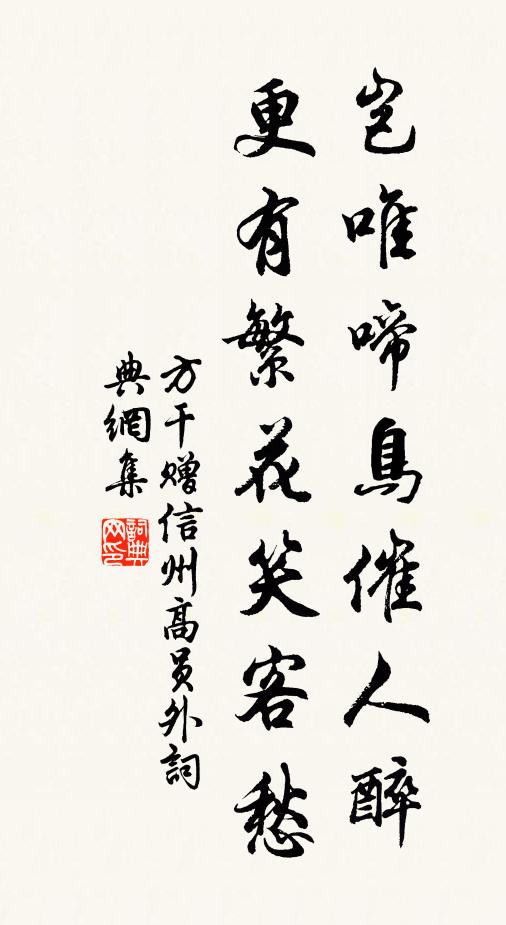 豈唯啼鳥催人醉
更有繁花笑客愁
方干贈信州高員外詞
典網集
詞典網印